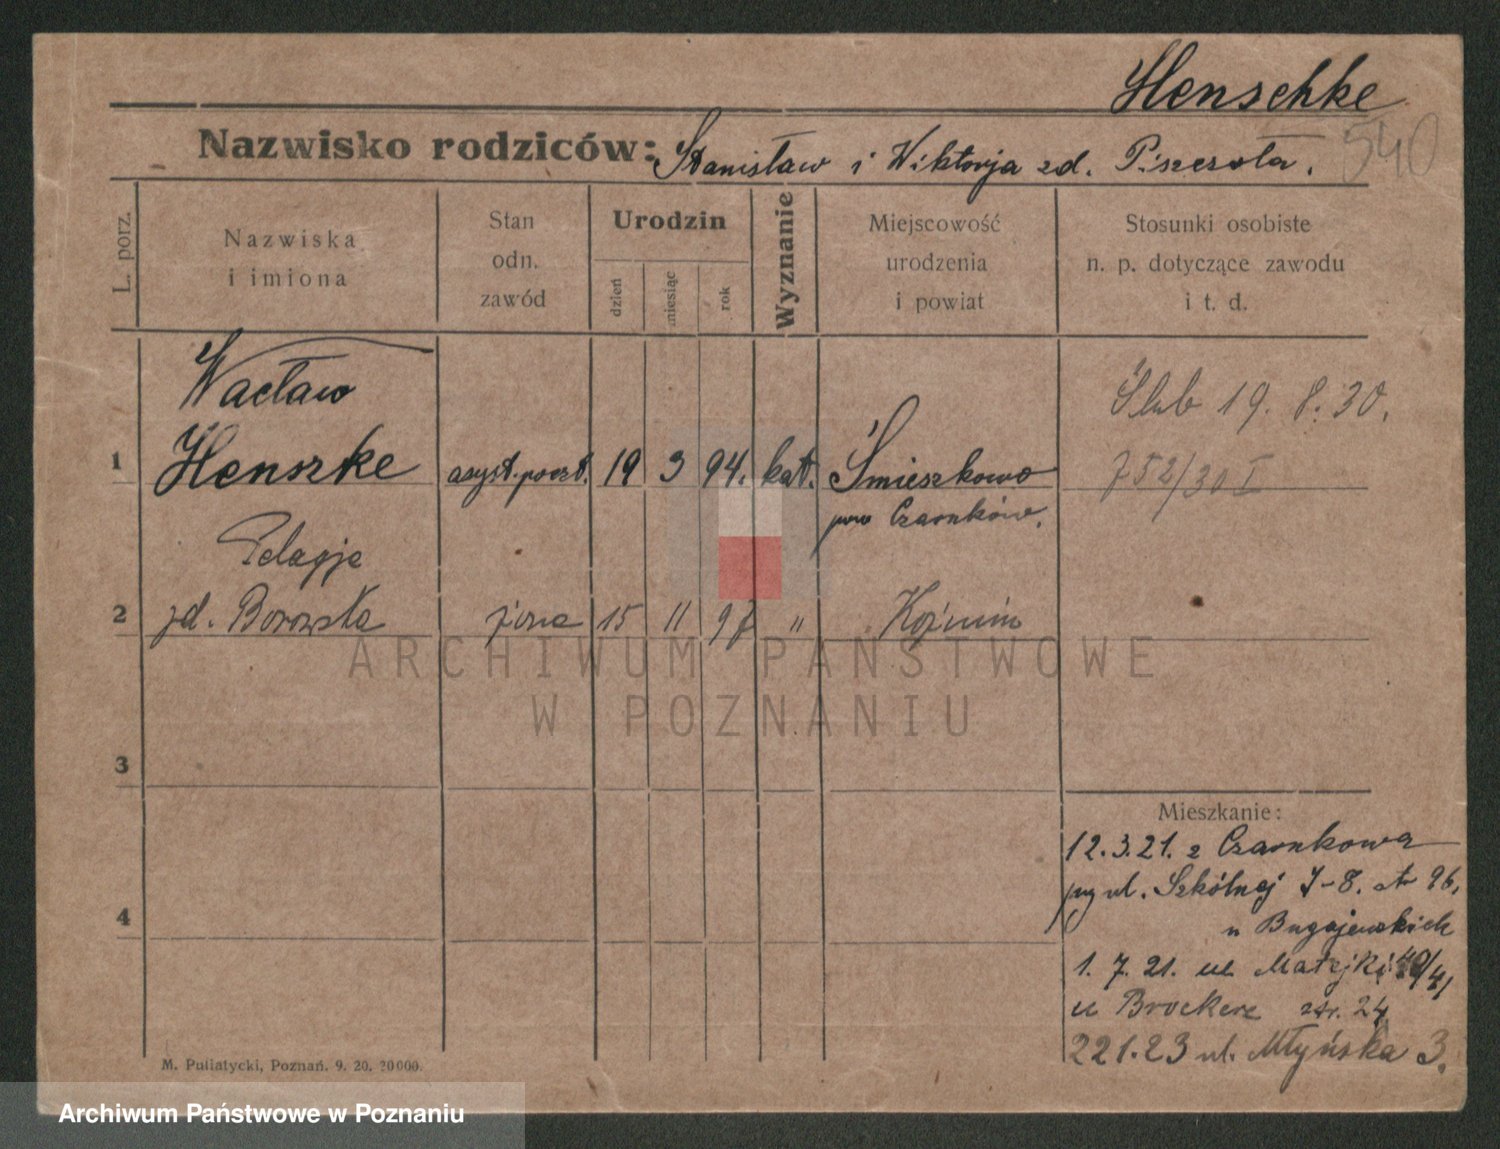 Henschke
540
Nazwisko rodziców: Stanisław i Wiktorja zd. Piszczoła.
L. porz.
Nazwiska
i imiona
Stan
odn.
zawód
Urodzin
dzień
miesiąc
rok
Wyznanie
Miejscowość
urodzenia
i powiat
Stosunki osobiste
n. p. dotyczące zawodu
i t. d.
Wacław
1 Henszke asyst. poczt. 19 3 94. kat. Śmieszkowo
pow Czarnków.
Ślub 19. 8. 30.
752/30 I
Pelagja
2 zd. Borowska żona 15 11 97 " Koźmin
ARCHIWUM PAŃSTWOWE
W POZNANIU
3
4
Mieszkanie:
12.3.21. z Czarnkowa
ul. Szkólnej 7-8. 96.
u Bugajewskich
1. 7. 21. ul Matejki 40/41
u Brockere str. 24
22 1. 23 ul. Młyńska 3.
M. Pullatycki, Poznań. 9. 20. 20000.
Archiwum Państwowe w Poznaniu